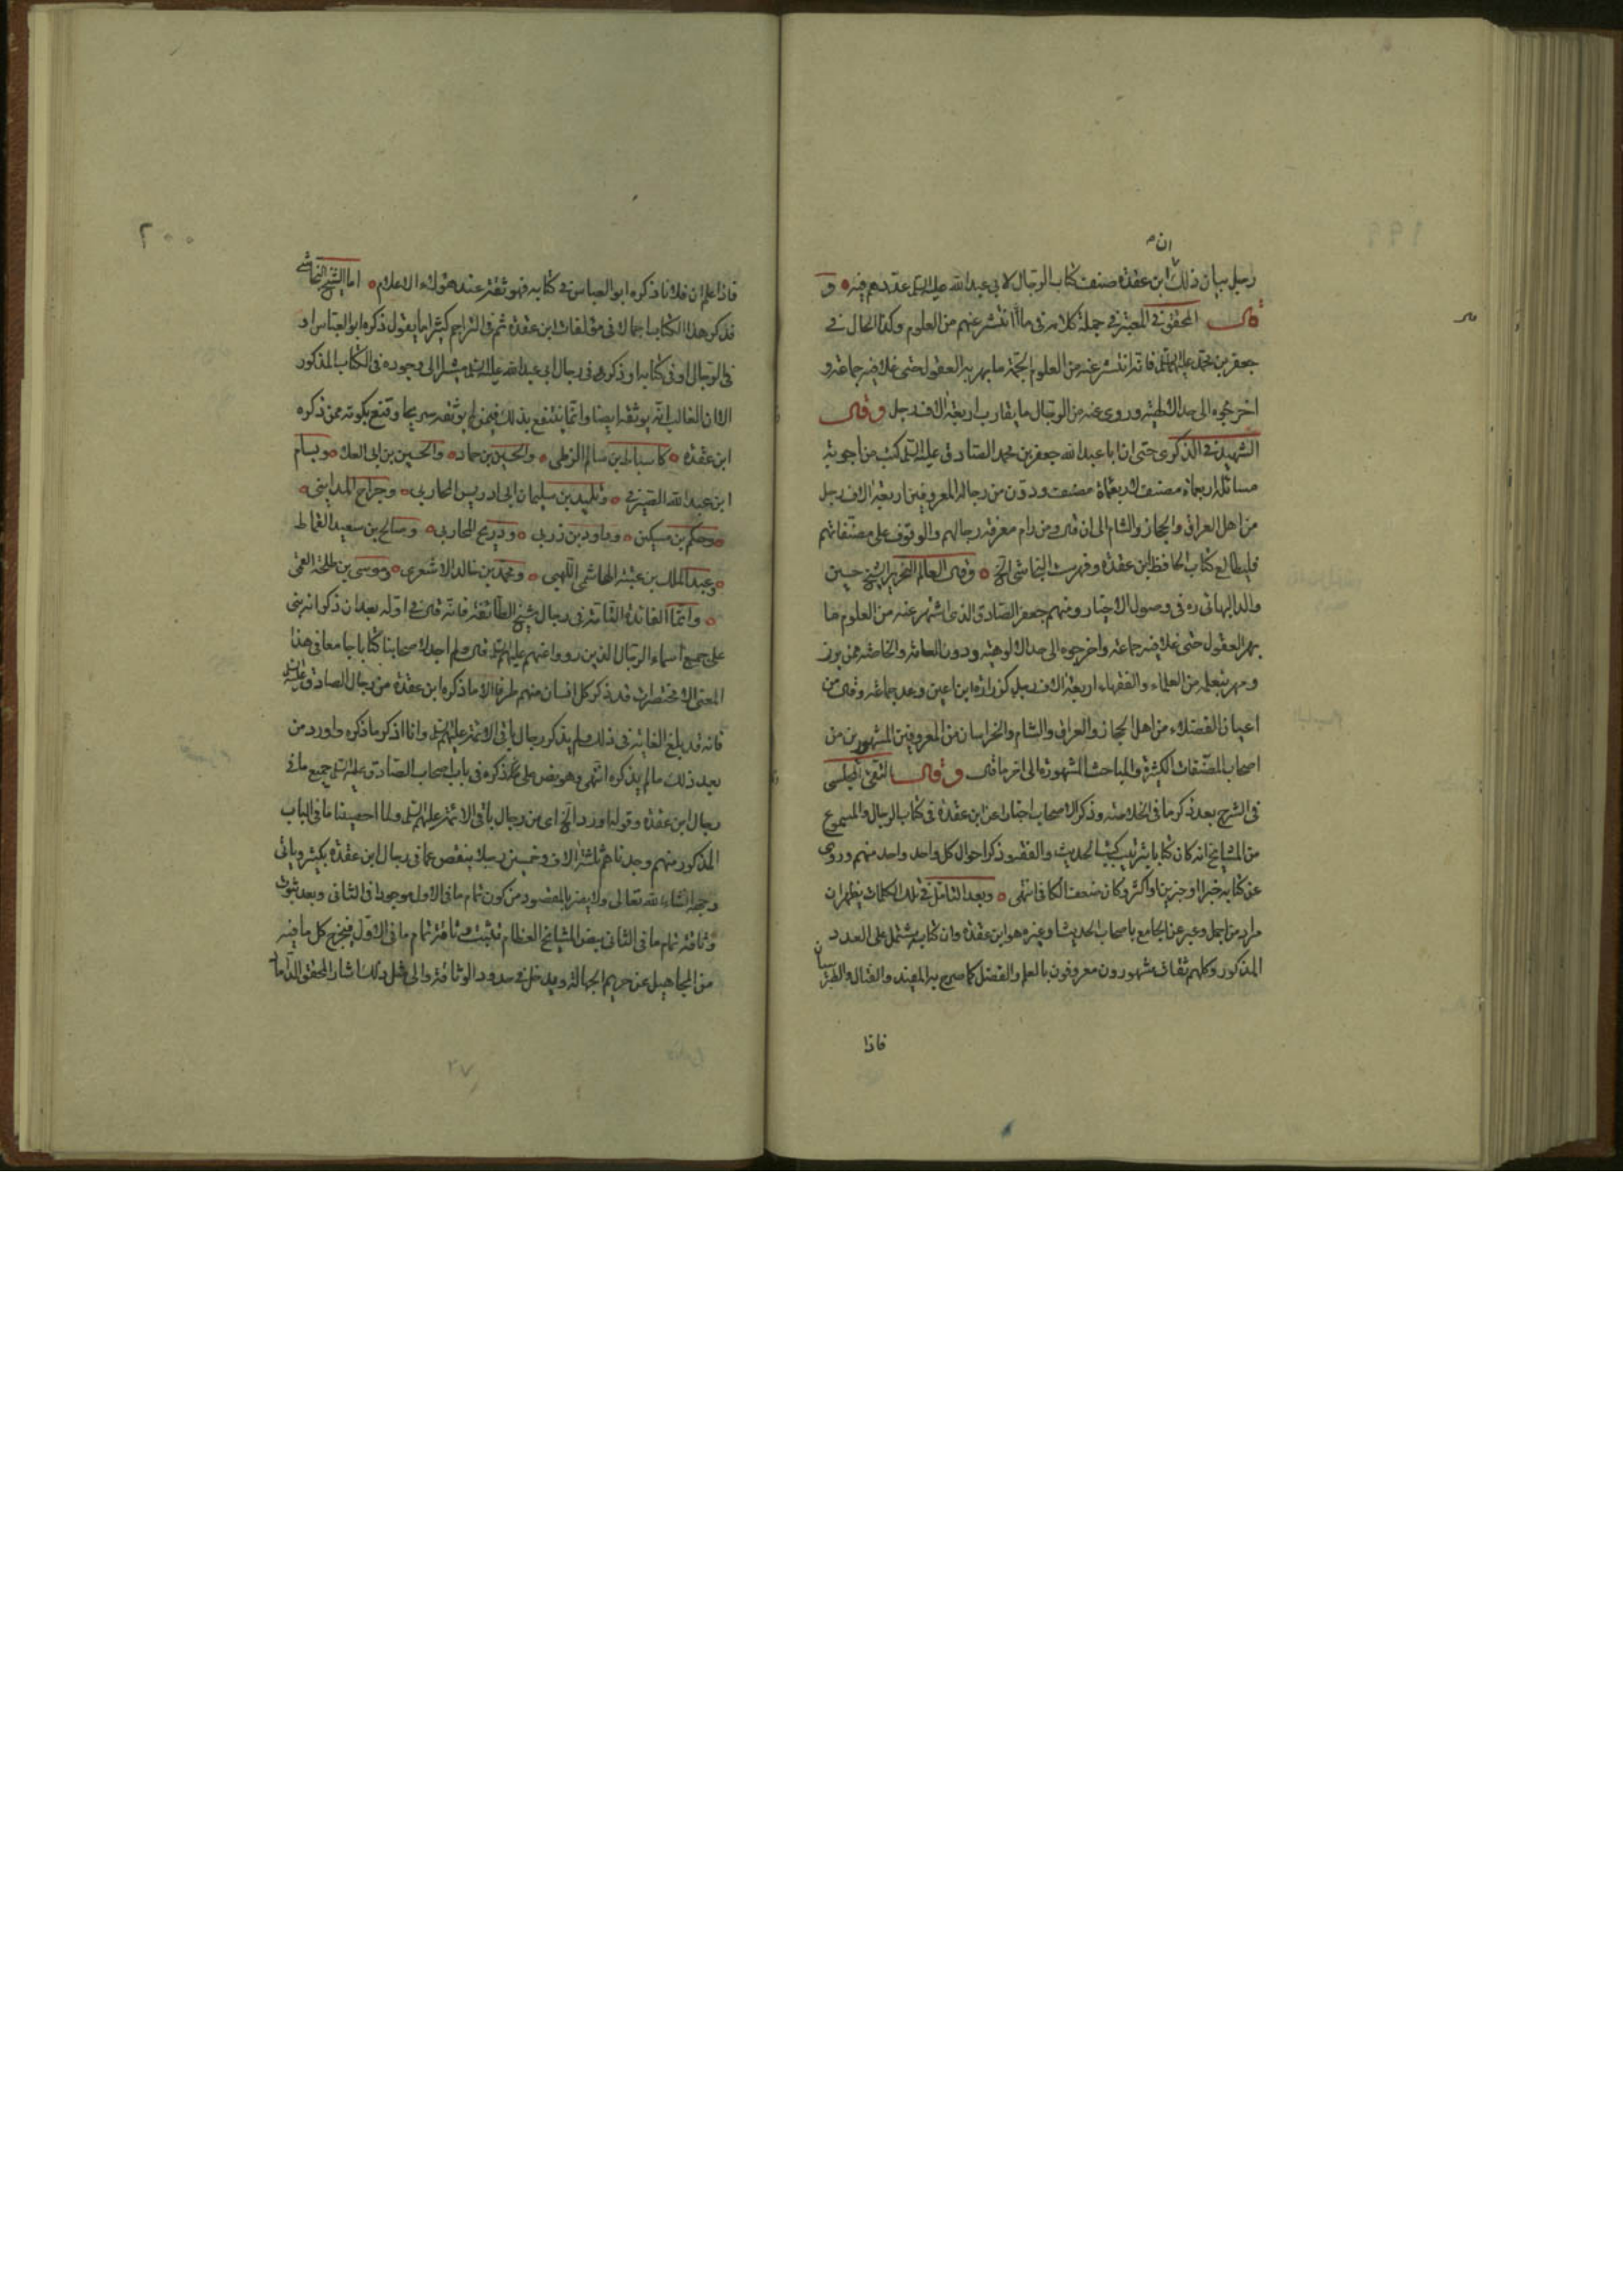 ان
رجل بيان ذلك ابن عقدة صنف كتاب الرجال لابي عبد الله عليه السلم عددهم فيه و
قال المحقق في المعتبر في جملة كلام في ما انتشر عنهم من العلوم وكذا الحال في
جعفر بن محمد عليهما السلم فانه انتشر عنه من العلوم الجمة ما بهر به العقول حتى غلا فيه جماعة و
اخرجوه الى حد الالهية وروى عنه من الرجال ما يقارب اربعة الاف رجل وقال
الشهيد في الذكرى حتى ان ابا عبد الله جعفر بن محمد الصادق عليه السلم كتب من اجوبة
مسائله اربعمائة مصنف لاربعمائة مصنف ودون من رجاله المعروفين اربعة الاف رجل
من اهل العراق والحجاز والشام الى ان قال ومن رام معرفة رجالهم والوقوف على مصنفاتهم
فليطالع كتاب الحافظ ابن عقدة وفهرست النجاشي الخ وقال العالم النحرير الشيخ حسين
والد البهائي ره في وصول الاخيار ومنهم جعفر الصادق الذي اشتهر عنه من العلوم ما
بهر العقول حتى غلا فيه جماعة واخرجوه الى حد الالوهية ودون العامة والخاصة ممن برز
ومهر بتعلمه من العلماء والفقهاء اربعة الاف رجل كزرارة ابن اعين وعد جماعة وقال من
اعيان الفضلاء من اهل الحجاز والعراق والشام والخراسان من المعروفين المشهورين من
اصحاب المصنفات الكثيرة والمباحث المشهورة الى اخر ما قال وقال التقي المجلسي
في الشرح بعد ذكر ما في الخلاصة وذكر الاصحاب اخبارا عن ابن عقدة في كتاب الرجال والمسموع
من المشايخ انه كان كتابا بترتيب كتب الحديث والفقه وذكر احوال كل واحد واحد منهم وروى
عن كتابه خبرا او خبرين او اكثر وكان ضعف الكافي انتهى وبعد التامل في تلك الكلمات يظهر ان
مراد من اجمل وعبر عن الجامع باصحاب الحديث او غيره هو ابن عقدة وان كتابه يشتمل على العدد
المذكور وكلهم ثقاة مشهورون معروفون بالعلم والفضل كما صرح به المفيد والفتال والطبرسيان
فاذا
٢٠٠
فاذا علم ان فلانا ذكره ابو العباس في كتابه فهو ثقة عند هؤلاء الاعلام اما الشيخ النجاشي
فذكر هذا الكتاب اجمالا في مؤلفات ابن عقدة ثم في التراجم كثيرا ما يقول ذكره ابو العباس او
في الرجال او في كتابه او ذكره في رجال ابي عبد الله عليه السلم مشيرا الى وجوده في الكتاب المذكور
الا ان الغالب انه يوثقه ايضا وانما ينتفع بذلك فيمن لم يوثقه صريحا وقنع بكونه ممن ذكره
ابن عقدة كاسباط بن سالم الزطي والحسين بن حماد والحسين بن ابي العلا وبسام
ابن عبد الله الصيرفي وتليد بن سليمان ابي ادريس المحاربي وجراح المدايني
وحكم بن مسكين وداود بن زربي وذريح المحاربي وصالح بن سعيد القماط
وعبد الملك بن عتبة الهاشمي اللهبي ومحمد بن خالد الاشعري وموسى بن طلحة القمي
واتما الفائدة التامة في رجال شيخ الطائفة فانه قال في اوله بعد ان ذكر انه بنى
على جميع اسماء الرجال الذين رووا عنهم عليهم السلم قال ولم اجد لاصحابنا كتابا جامعا في هذا
المعنى الا مختصرات قد ذكر كل انسان منهم طرفا الا ما ذكره ابن عقدة من رجال الصادق عليه السلم
فانه قد بلغ الغاية في ذلك ولم يذكر رجال باقي الائمة عليهم السلم وانا اذكر ما ذكره واورد من
بعد ذلك ما لم يذكره انتهى وهو نص على ذكره في باب اصحاب الصادق عليه السلم جميع ما في
رجال ابن عقدة وقوله اورد الخ اي من رجال باقي الائمة عليهم السلم ولما احصينا ما في الباب
المذكور منهم وجدناهم ثلاثة الاف وخمسين رجلا ينقص عما في رجال ابن عقدة بكثير وياتي
وجهه انشاء الله تعالى ولا يضر بالمقصود من كون تمام ما في الاول موجودا في الثاني وبعد ثبوت
وثاقة تمام ما في الثاني بنص المشايخ العظام تثبت وثاقة تمام ما في الاول فيخرج كل ما فيه
من المجاهيل عن حريم الجهالة ويدخل في حدود الوثاقة والى مثل ذلك اشار المحقق الداماد
٢٧